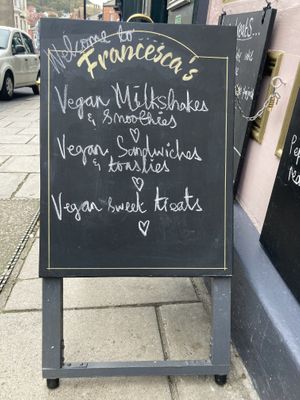 Welcome to...
Francesca's
Vegan Milkshakes
& Smoothies
Vegan Sandwiches
& toasties
Vegan sweet treats